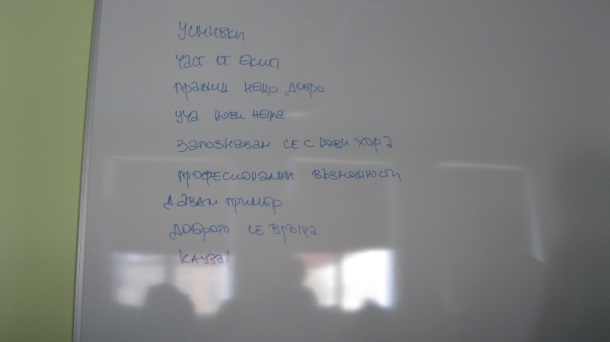 усмивки
част от екип
правиш нещо добро
уча нови неща
запознавам се с нови хора
професионални възможности
давам пример
доброто се връща
кауза